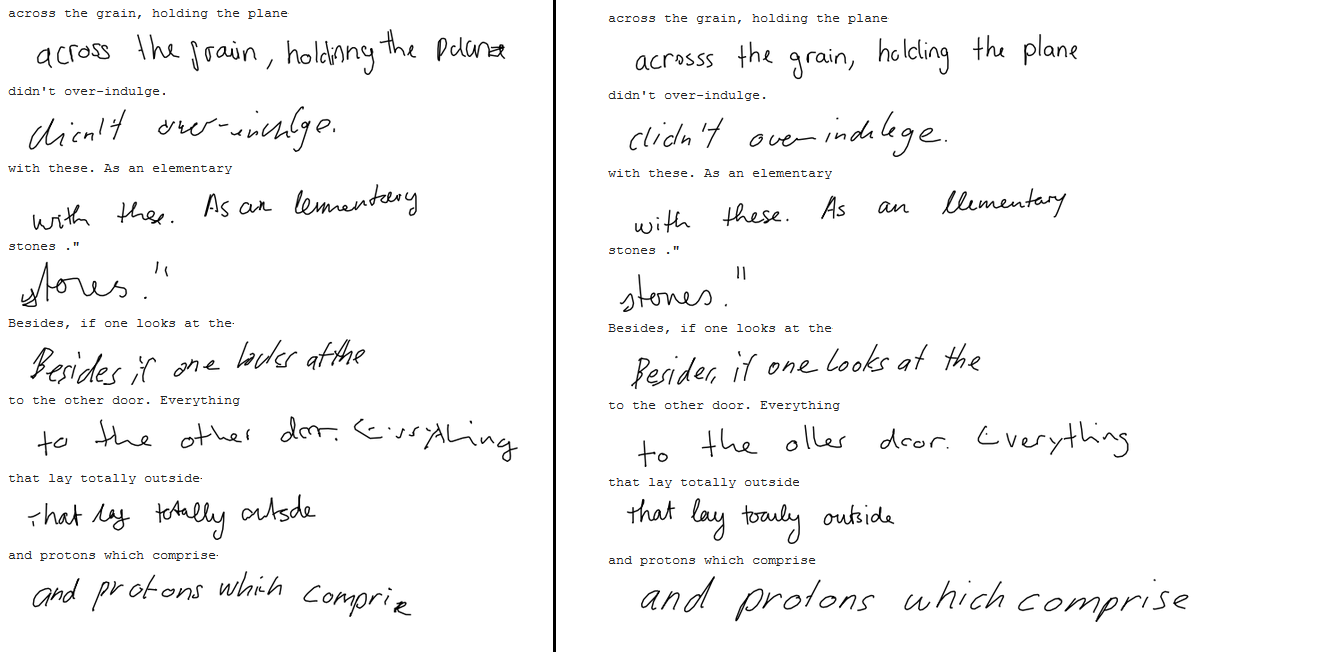 across the grain, holding the plane
across the grain, holdinng the Pdana
didn't over-indulge.
didn't over-indulge.
with these. As an elementary
with these. As an lementary
stones ."
stones."
Besides, if one looks at the
Besides if one looks at the
to the other door. Everything
to the other door.
that lay totally outside
that lay totally outsde
and protons which comprise
and protons which comprise
across the grain, holding the plane
acrosss the grain, holding the plane
didn't over-indulge.
didn't over-indulege.
with these. As an elementary
with these. As an llementary
stones ."
stones."
Besides, if one looks at the
Besides, if one looks at the
to the other door. Everything
to the oller door. Everything
that lay totally outside
that lay outside
and protons which comprise
and protons which comprise